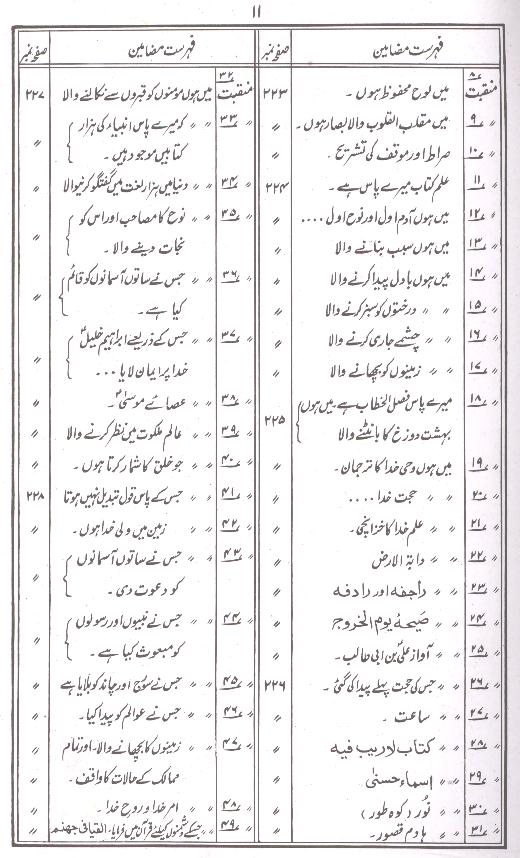 ۱۱
فہرست مضامین صفحہ نمبر
۸ منقبت میں لوح محفوظ ہوں۔ ۲۲۳
۹ میں مقلب القلوب والابصار ہوں۔ 〃
۱۰ صراط اور موقف کی تشریح۔ 〃
۱۱ علم کتاب میرے پاس ہے۔ ۲۲۴
۱۲ میں ہوں آدم اول اور نوح اول .... 〃
۱۳ میں ہوں سبب بنانے والا 〃
۱۴ میں ہوں بادل پیدا کرنے والا 〃
۱۵ 〃 〃 درختوں کو سبز کرنے والا 〃
۱۶ 〃 〃 چشمے جاری کرنے والا 〃
۱۷ 〃 〃 زمینوں کو بچھانے والا 〃
۱۸ میرے پاس فصل الخطاب ہے میں ہوں
بہشت دوزخ کا بانٹنے والا ۲۲۵
۱۹ میں ہوں وحی خدا کا ترجمان۔ 〃
۲۰ 〃 〃 حجت خدا .... 〃
۲۱ 〃 〃 علم خدا کا خزانچی۔ 〃
۲۲ 〃 〃 دابة الارض 〃
۲۳ 〃 〃 راجفه اور رادفه 〃
۲۴ 〃 〃 صیحهٔ یوم الخروج 〃
۲۵ 〃 〃 آواز علیؑ بن ابی طالب۔ 〃
۲۶ 〃 〃 جس کی حجت پہلے پیدا کی گئی۔ ۲۲۶
۲۷ 〃 〃 ساعت۔ 〃
۲۸ 〃 〃 کتاب لاریب فیه 〃
۲۹ 〃 〃 اسماء حسنٰی 〃
۳۰ 〃 〃 نُور (کوہ طور) 〃
۳۱ 〃 〃 ہادم قصور۔ 〃
فہرست مضامین صفحہ نمبر
۳۲ منقبت میں ہوں مومنوں کو قبروں سے نکالنے والا ۲۲۷
۳۳ 〃 〃 کو میرے پاس انبیاء کی ہزار
کتابیں موجود ہیں۔ 〃
۳۴ 〃 〃 دنیا میں ہزار لغت میں گفتگو کرنیوالا 〃
۳۵ 〃 〃 نوح کا مصاحب اور اس کو
نجات دینے والا۔ 〃
۳۶ 〃 〃 جس نے ساتوں آسمانوں کو قائم
کیا ہے۔ 〃
۳۷ 〃 〃 جس کے ذریعے ابراہیم خلیلؑ
خدا پر ایمان لایا ... 〃
۳۸ 〃 〃 عصائے موسٰیؑ۔ 〃
۳۹ 〃 〃 عالم ملکوت میں نظر کرنے والا 〃
۴۰ 〃 〃 جو خلق کا شمار کرتا ہوں۔ 〃
۴۱ 〃 〃 جس کے پاس قول تبدیل نہیں ہوتا ۲۲۸
۴۲ 〃 〃 زمین میں ولی خدا ہوں۔ 〃
۴۳ 〃 〃 جس نے ساتوں آسمانوں
کو دعوت دی۔ 〃
۴۴ 〃 〃 جس نے نبیوں اور رسولوں
کو مبعوث کیا ہے۔ 〃
۴۵ 〃 〃 جس نے سورج اور چاند کو بلایا ہے 〃
۴۶ 〃 〃 جس نے عوالم کو پیدا کیا۔ 〃
۴۷ 〃 〃 زمینوں کا بچھانے والا۔ اور تمام
ممالک کے حالات کا واقف۔ 〃
۴۸ 〃 〃 امر خدا و روح خدا۔ 〃
۴۹ 〃 〃 جسکے دشمنوں کیلئے قرآن میں فرمایا۔ القیا فی جهنم 〃